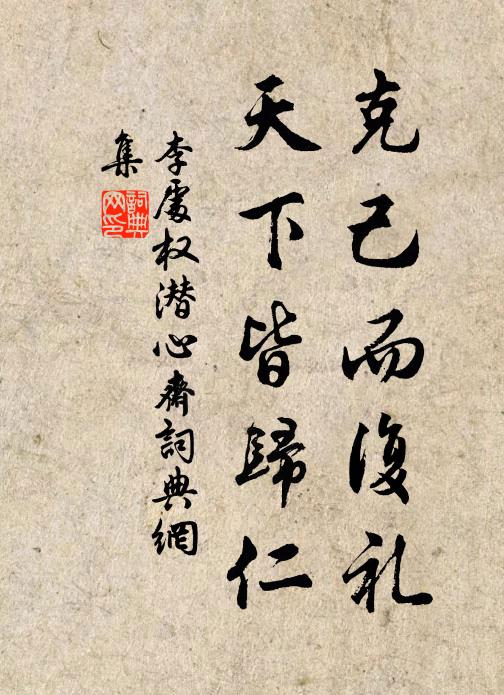 克己而復礼
天下皆歸仁
李處权潜心齋詞典網
集
詞典网印